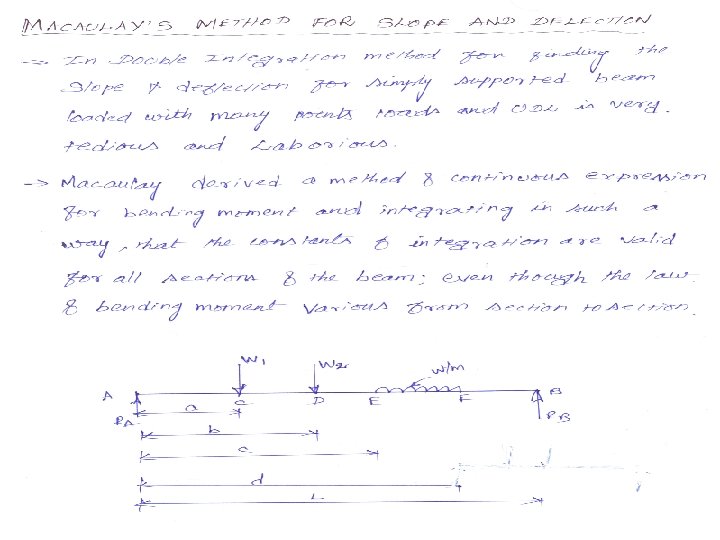 MACAULAY'S METHOD FOR SLOPE AND DEFLECTION
→ In Double Integration method for finding the
slope & deflection for simply supported beam
loaded with many points loads and UDL is very
tedious and Laborious.
→ Macaulay derived a method of continuous expression
for bending moment and integrating in such a
way, that the constants of integration are valid
for all sections of the beam; even though the law
of bending moment various from section to section.
W1 W2 w/m
A C D E F B
a
RA RB
b
c
d
L